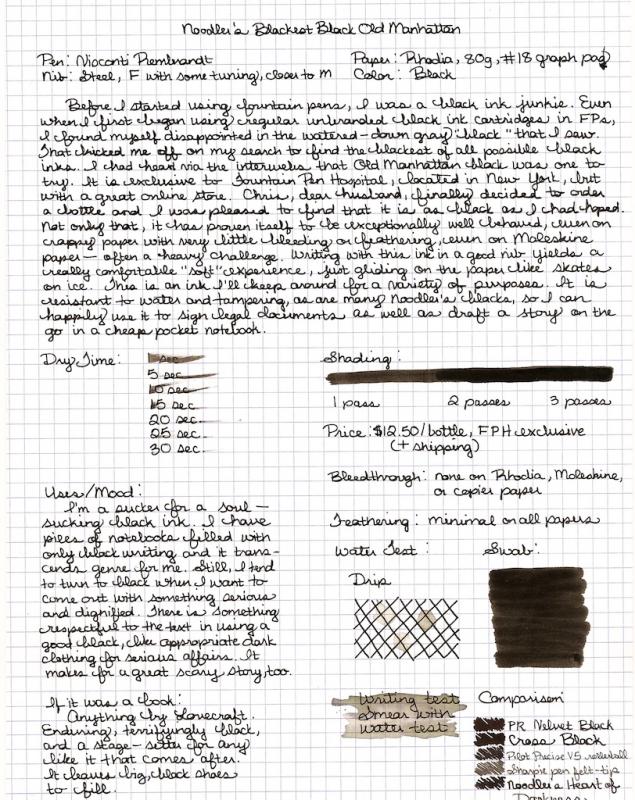 Noodler's Blackest Black Old Manhattan
Pen: Visconti Rembrandt
Nib: Steel, F with some tuning, closer to M
Paper: Rhodia, 80g, #18 graph pad
Color: Black
Before I started using fountain pens, I was a black ink junkie. Even
when I first began using regular unbranded black ink cartridges in FPs,
I found myself disappointed in the watered-down gray "black" that I saw.
That kicked me off on my search to find the blackest of all possible black
inks. I had heard via the interwebs that Old Manhattan black was one to
try. It is exclusive to Fountain Pen Hospital, located in New York, but
with a great online store. Chris, dear husband, finally decided to order
a bottle and I was pleased to find that it is as black as I had hoped.
Not only that, it has proven itself to be exceptionally well behaved, even on
crappy paper with very little bleeding or feathering, even on Moleskine
paper — often a heavy challenge. Writing with this ink in a good nib yields a
really comfortable "soft" experience, just gliding on the paper like skates
on ice. This is an ink I'll keep around for a variety of purposes. It is
resistant to water and tampering, as are many Noodler's blacks, so I can
happily use it to sign legal documents as well as draft a story on the
go in a cheap pocket notebook.
Dry Time:
1 sec
5 sec.
10 sec
15 sec.
20 sec.
25 sec.
30 sec.
Shading:
1 pass 2 passes 3 passes
Price: $12.50/bottle, FPH exclusive
(+ shipping)
Bleedthrough: none on Rhodia, Moleskine,
or copier paper
Feathering: minimal on all papers
Water Test: Swab:
Drip
Uses/Mood:
I'm a sucker for a soul-
sucking black ink. I have
piles of notebooks filled with
only black writing and it trans-
cends genre for me. Still, I tend
to turn to black when I want to
come out with something serious
and dignified. There is something
respectful to the text in using a
good black, like appropriate dark
clothing for serious affairs. It
makes for a great scary story, too.
If it was a book:
Anything by Lovecraft.
Enduring, terrifyingly black,
and a stage-setter for any
like it that comes after.
It leaves big, black shoes
to fill.
Writing test
Smear with
water test
Comparison:
PR Velvet Black
Cross Black
Pilot Precise V5 rollerball
Sharpie pen felt-tip
Noodler's Heart of
Darkness